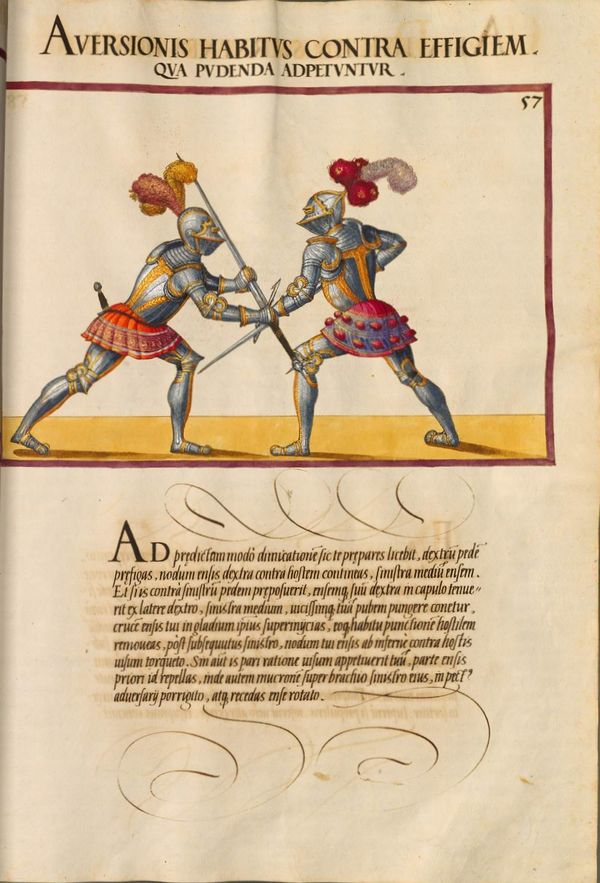 AVERSIONIS HABITVS CONTRA EFFIGIEM.
QVA PVDENDA ADPETVNTVR.
57
AD prędictam modō dimicationē sic te prępares licebit, dextrū pedē
pręfigas, nodum ensis dextra contra hostem contineas, sinistra mediū ensem.
Et si is contrā sinistrū pedem preposuerit, ensemq, suū dextra in capulo tenue-
rit ex latere dextro, sinistra medium, uicissimq, tuā pubem pungere conetur,
crucē ensis tui in gladium ipsius superinycias, eoq, habitu punctionē hostilem
remoueas, pōst subsequutus sinistro, nodum tui ensis ab infernē contra hostis
uisum torqueto. Sin aut is pari ratione uisum appetiuerit tuū, parte ensis
priori id repellas, inde autem mucronē super brachio sinistro eius, in pect9
adversarij porrigito, atq, recedas ense rotato.